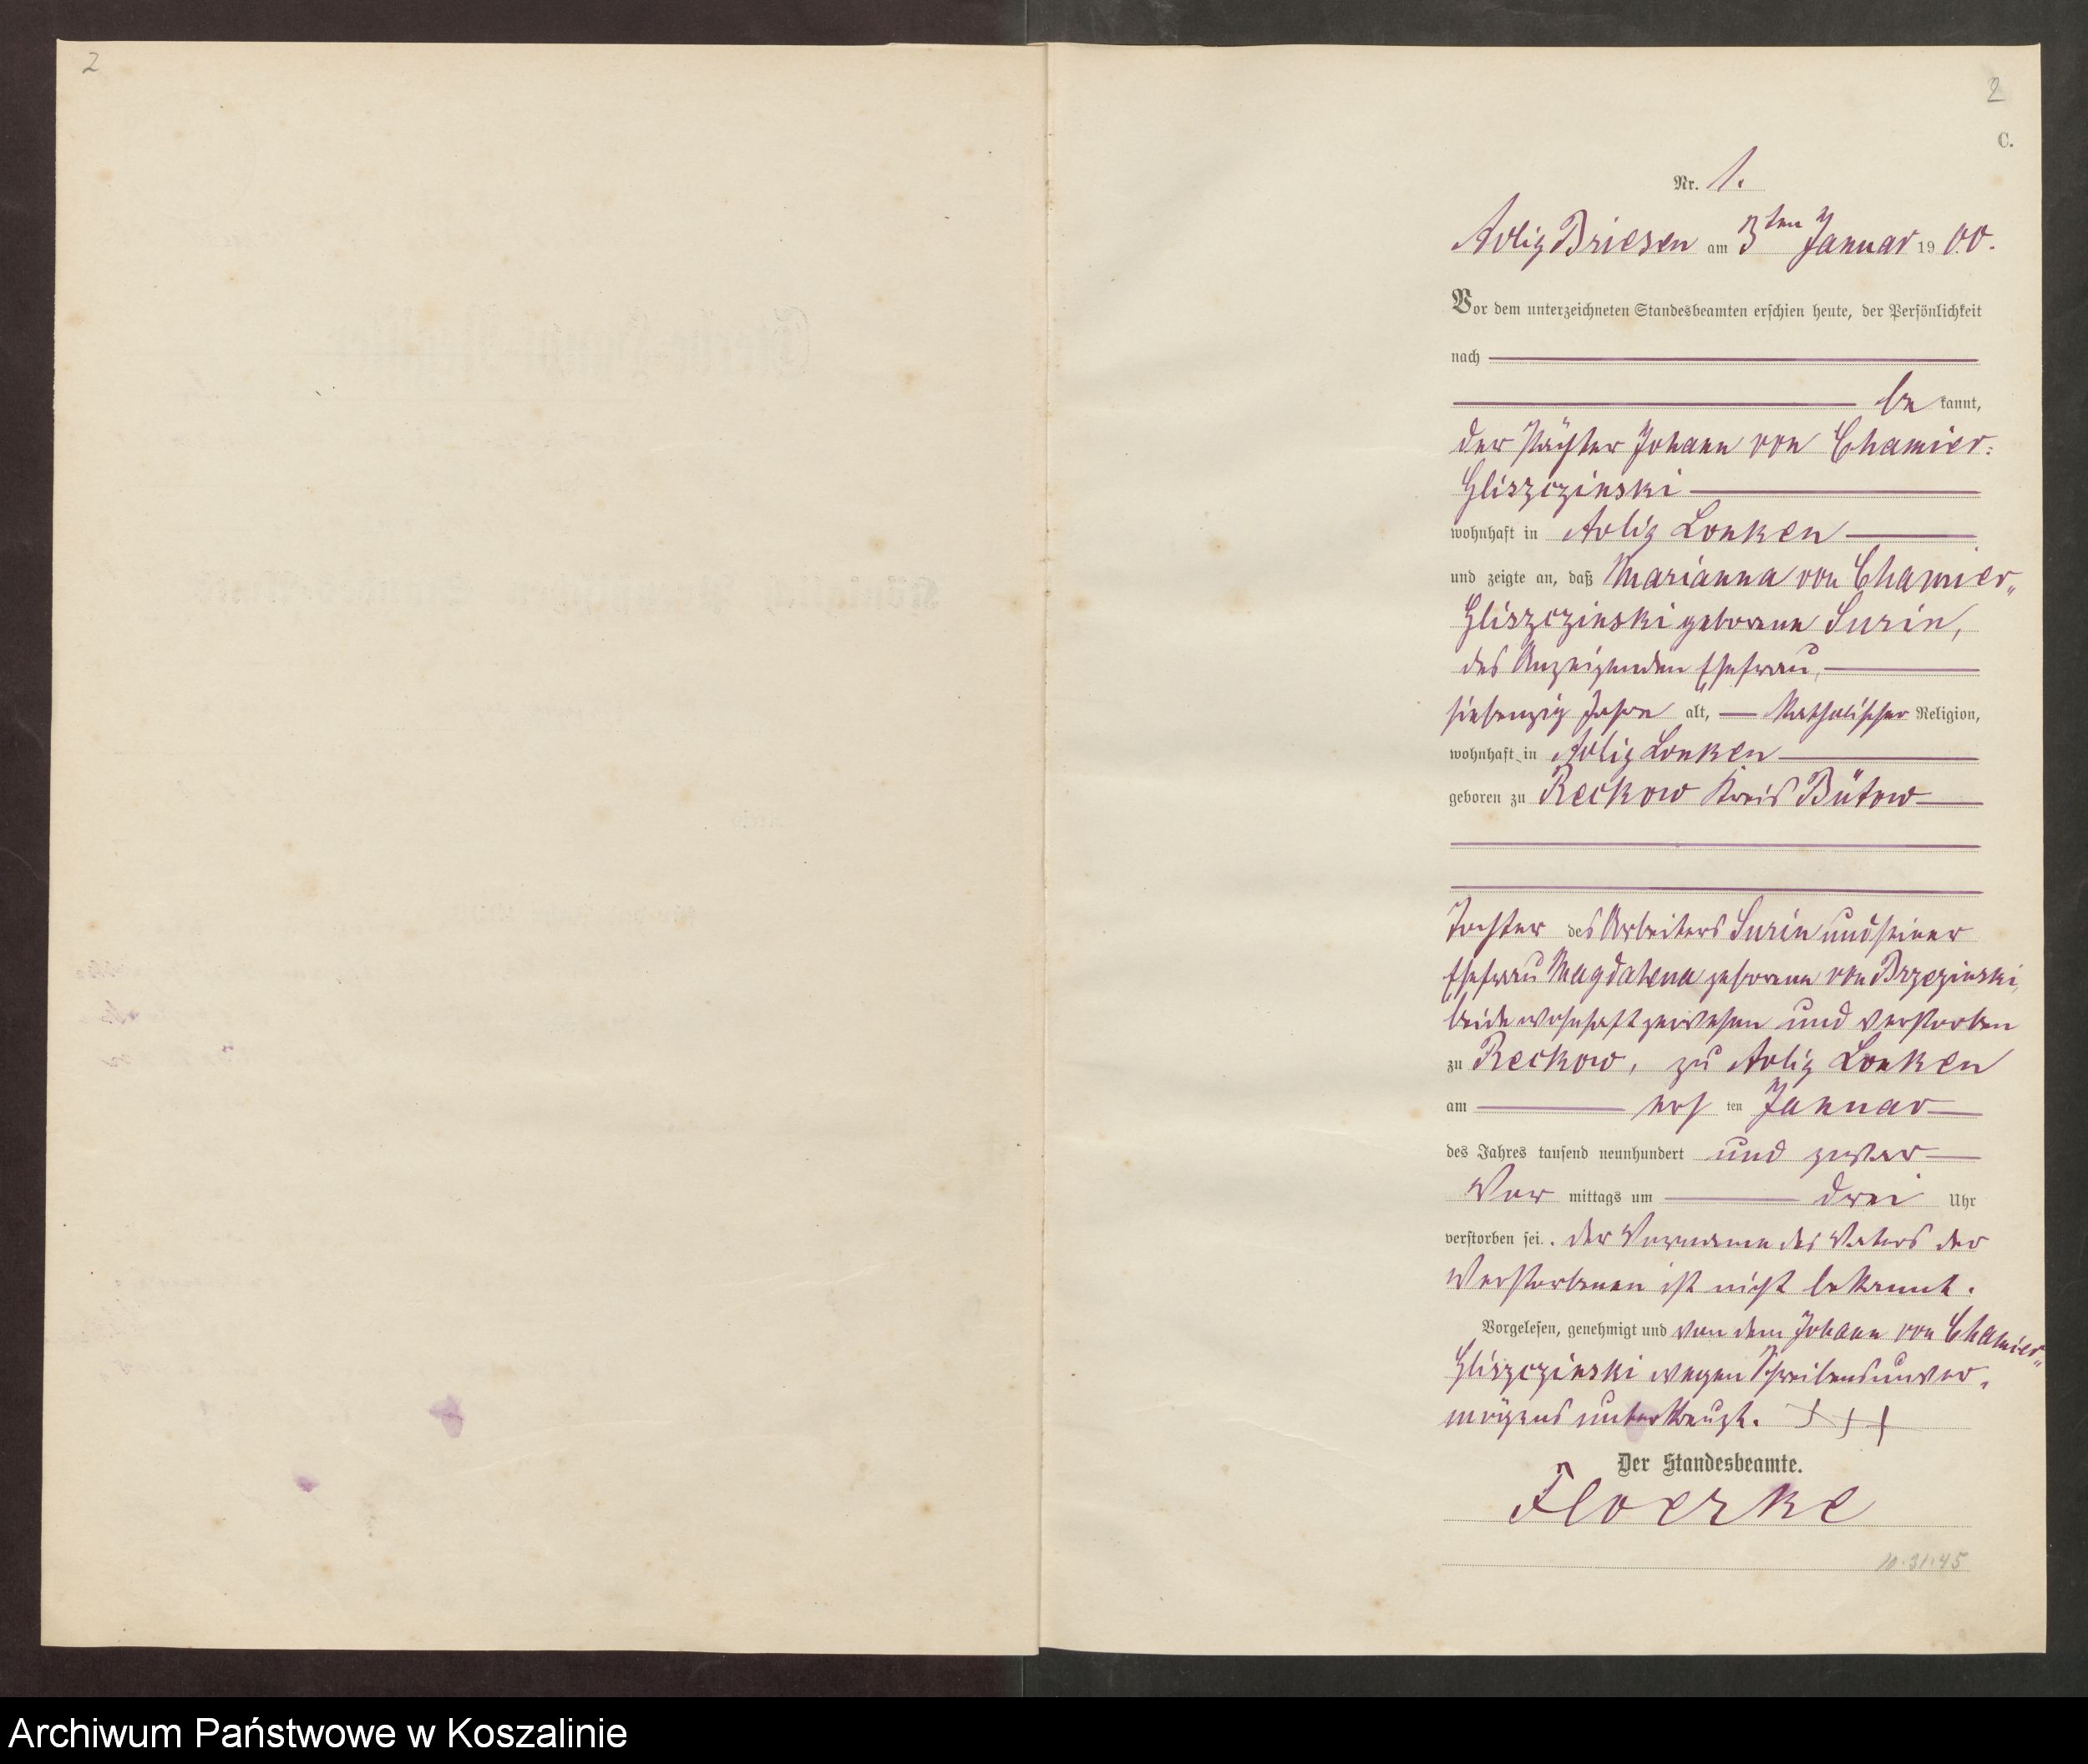 2
2
C.
Nr. 1.
Adlig Briesen am 3ten Januar 1900.
Vor dem unterzeichneten Standesbeamten erschien heute, der Persönlichkeit
nach
be kannt,
der Pächter Johann von Chamier-
Gliszczinski
wohnhaft in Adlig Lonken
und zeigte an, daß Marianna von Chamier-
Gliszczinski geborene Surin,
des Anzeigenden Ehefrau,
siebenzig Jahre alt, katholischer Religion,
wohnhaft in Adlig Lonken
geboren zu Reckow Kreis Bütow
Tochter des Arbeiters Surin und seiner
Ehefrau Magdalena geborene von Brzezinski,
beide wohnhaft gewesen und verstorben
zu Reckow, zu Adlig Lonken
am ersten Januar
des Jahres tausend neunhundert und zwar
Vor mittags um drei Uhr
verstorben sei. Der Vorname des Vaters der
Verstorbenen ist nicht bekannt.
Vorgelesen, genehmigt und von dem Johann von Chamier-
Gliszczinski wegen Schreibensunver-
mögens unterkreuzt. + + +
Der Standesbeamte.
Floerke
10.31.45
Archiwum Państwowe w Koszalinie